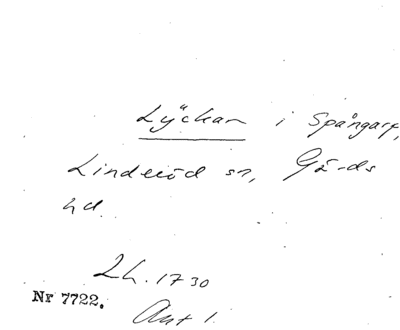 Lÿckan i Spångarp,
Linderöd sn, Gärds
hd.
Lh. 1730
Nr 7722. Ant 1.